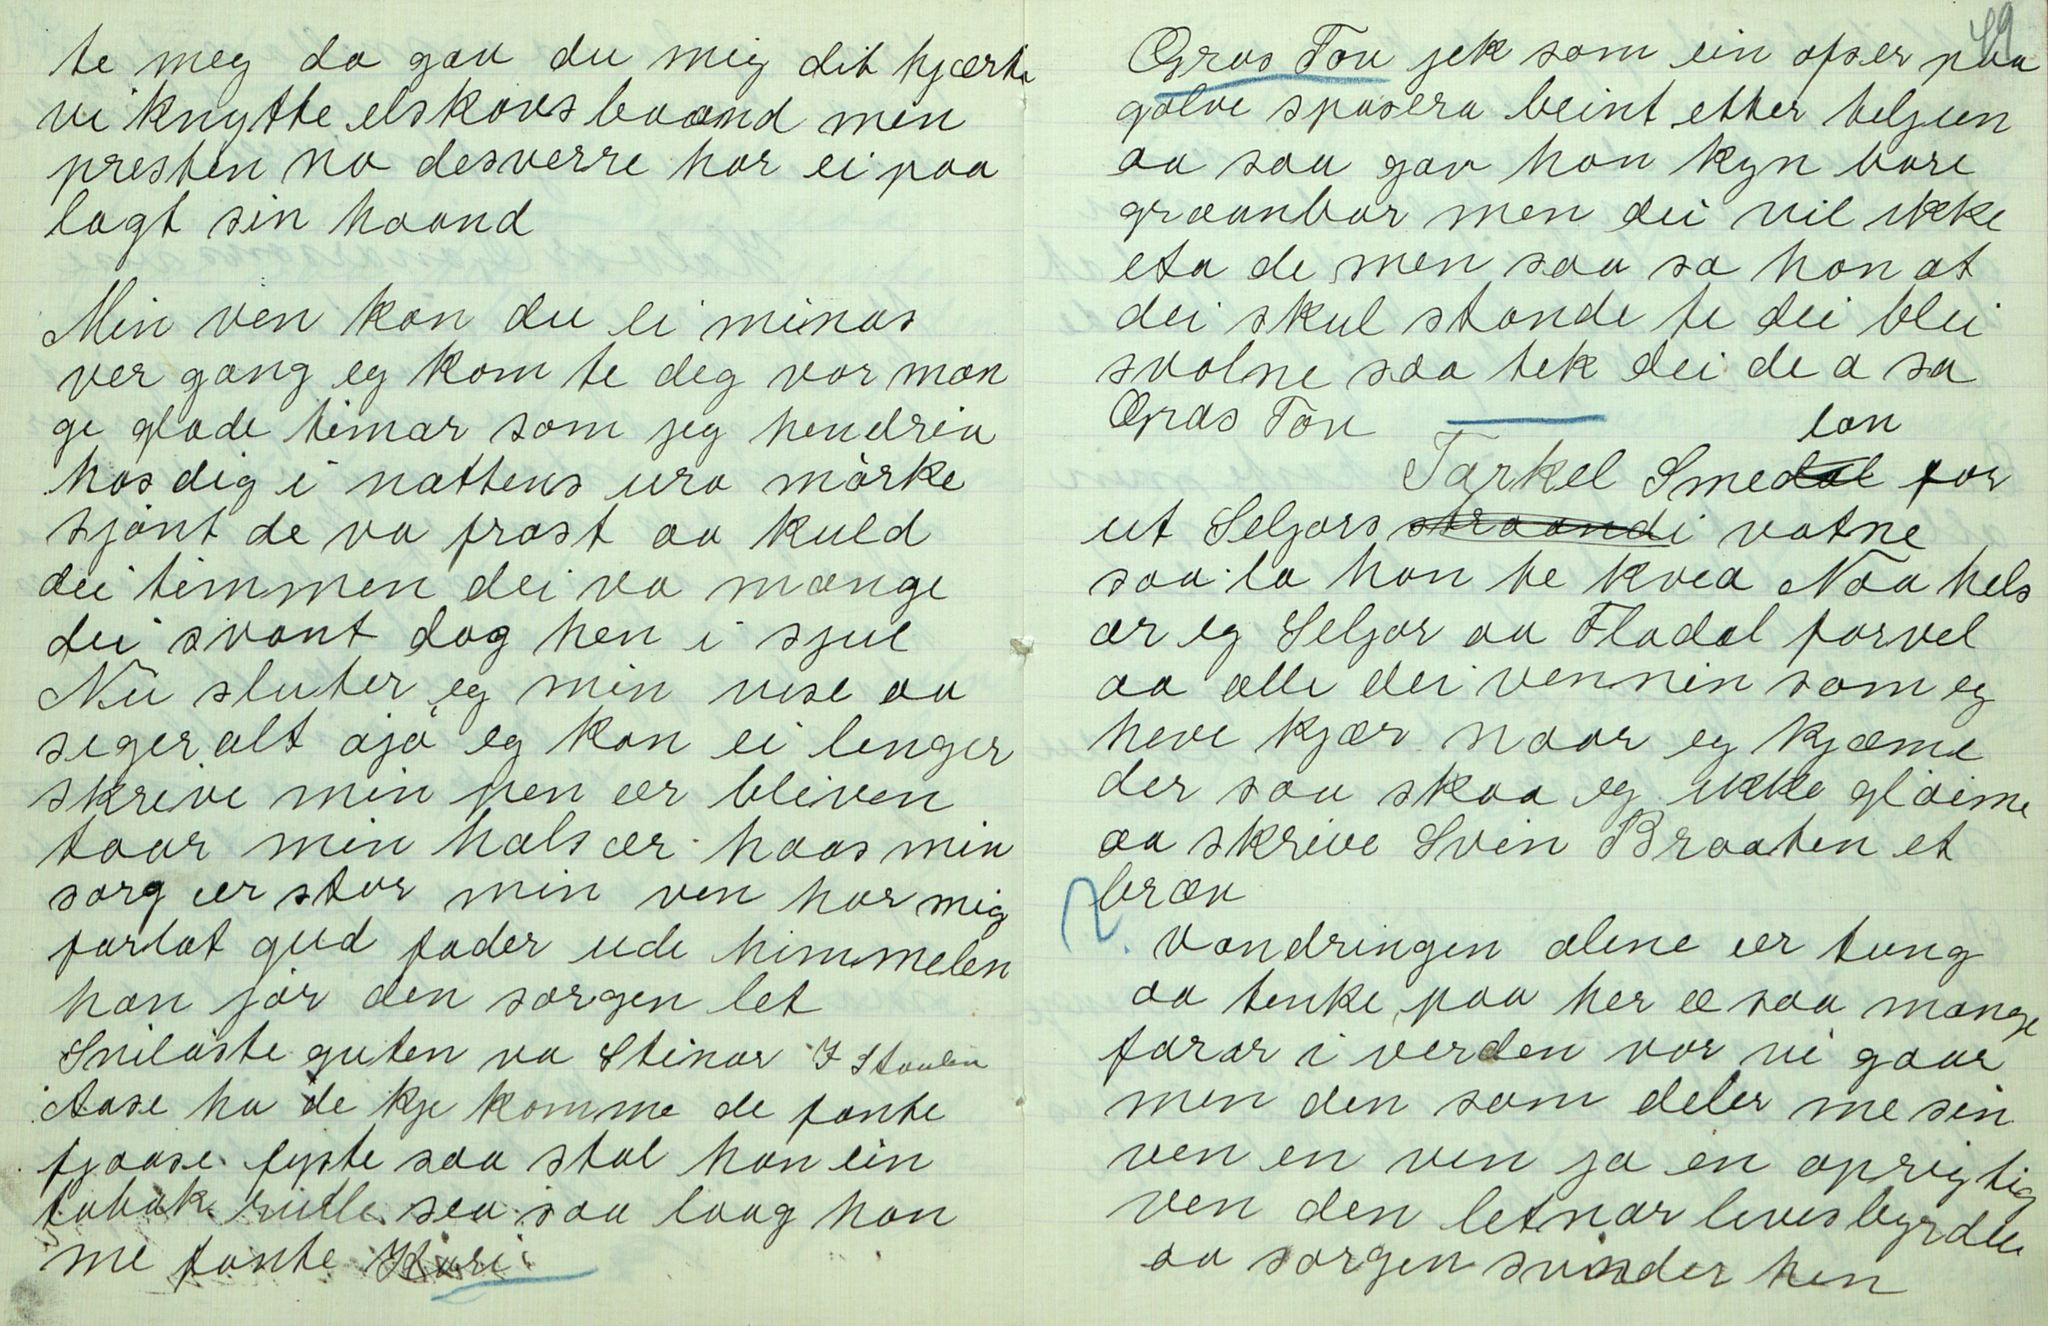 te meg da gav du mig dit hjærte
vi knytte elskovsbaand men
presten no desverre har ei paa
lagt sin haand
Min ven kan du ei minas
ver gang eg kom te deg var man
ge glade timar som jeg hendrev
hos dig i nattens ura mörke
sjönt de va frost aa kuld
dei timmen dei va mange
dei svant dog hen i sjul
Nu sluter eg min vise aa
seger alt ajö eg kan ei lenger
skrive min pen er bleven
taar min hals er haas min
sorg er stor min ven har mig
forlat gud fader ude himmelen
han jör den sorgen let
Snilaste guten va Steinar I Staulen
Aase ha de kje komme de fante
fjaase fyste saa stal han ein
tobak rudle sea saa laag han
me fante Kari
49
Gras Tov jek som ein ofser paa
golve spasera beint etter teljun
aa saa gav han kyn bare
graanbar men dei vil ikke
eta de men saa sa han at
dei skul stande te dei blei
svolne saa tek dei de a sa
Gras Tov
lan
Tarkel Smedal for
ut Seljors straandi vatne
saa la han te kvea Naa hels
ar eg Seljor aa Fladal farvel
aa alle dei vennin som eg
heve kjær naar eg kjæme
der saa skaa eg ikke glöime
aa skrive Svein Braaten et
bræv
Vandringen alene er tung
aa tenke paa her æ saa mange
farar i verden vor vi gaar
men den som deler me sin
ven en ven ja en oprigtig
ven den letnar livesbyrdei
aa sorgen svinder hen